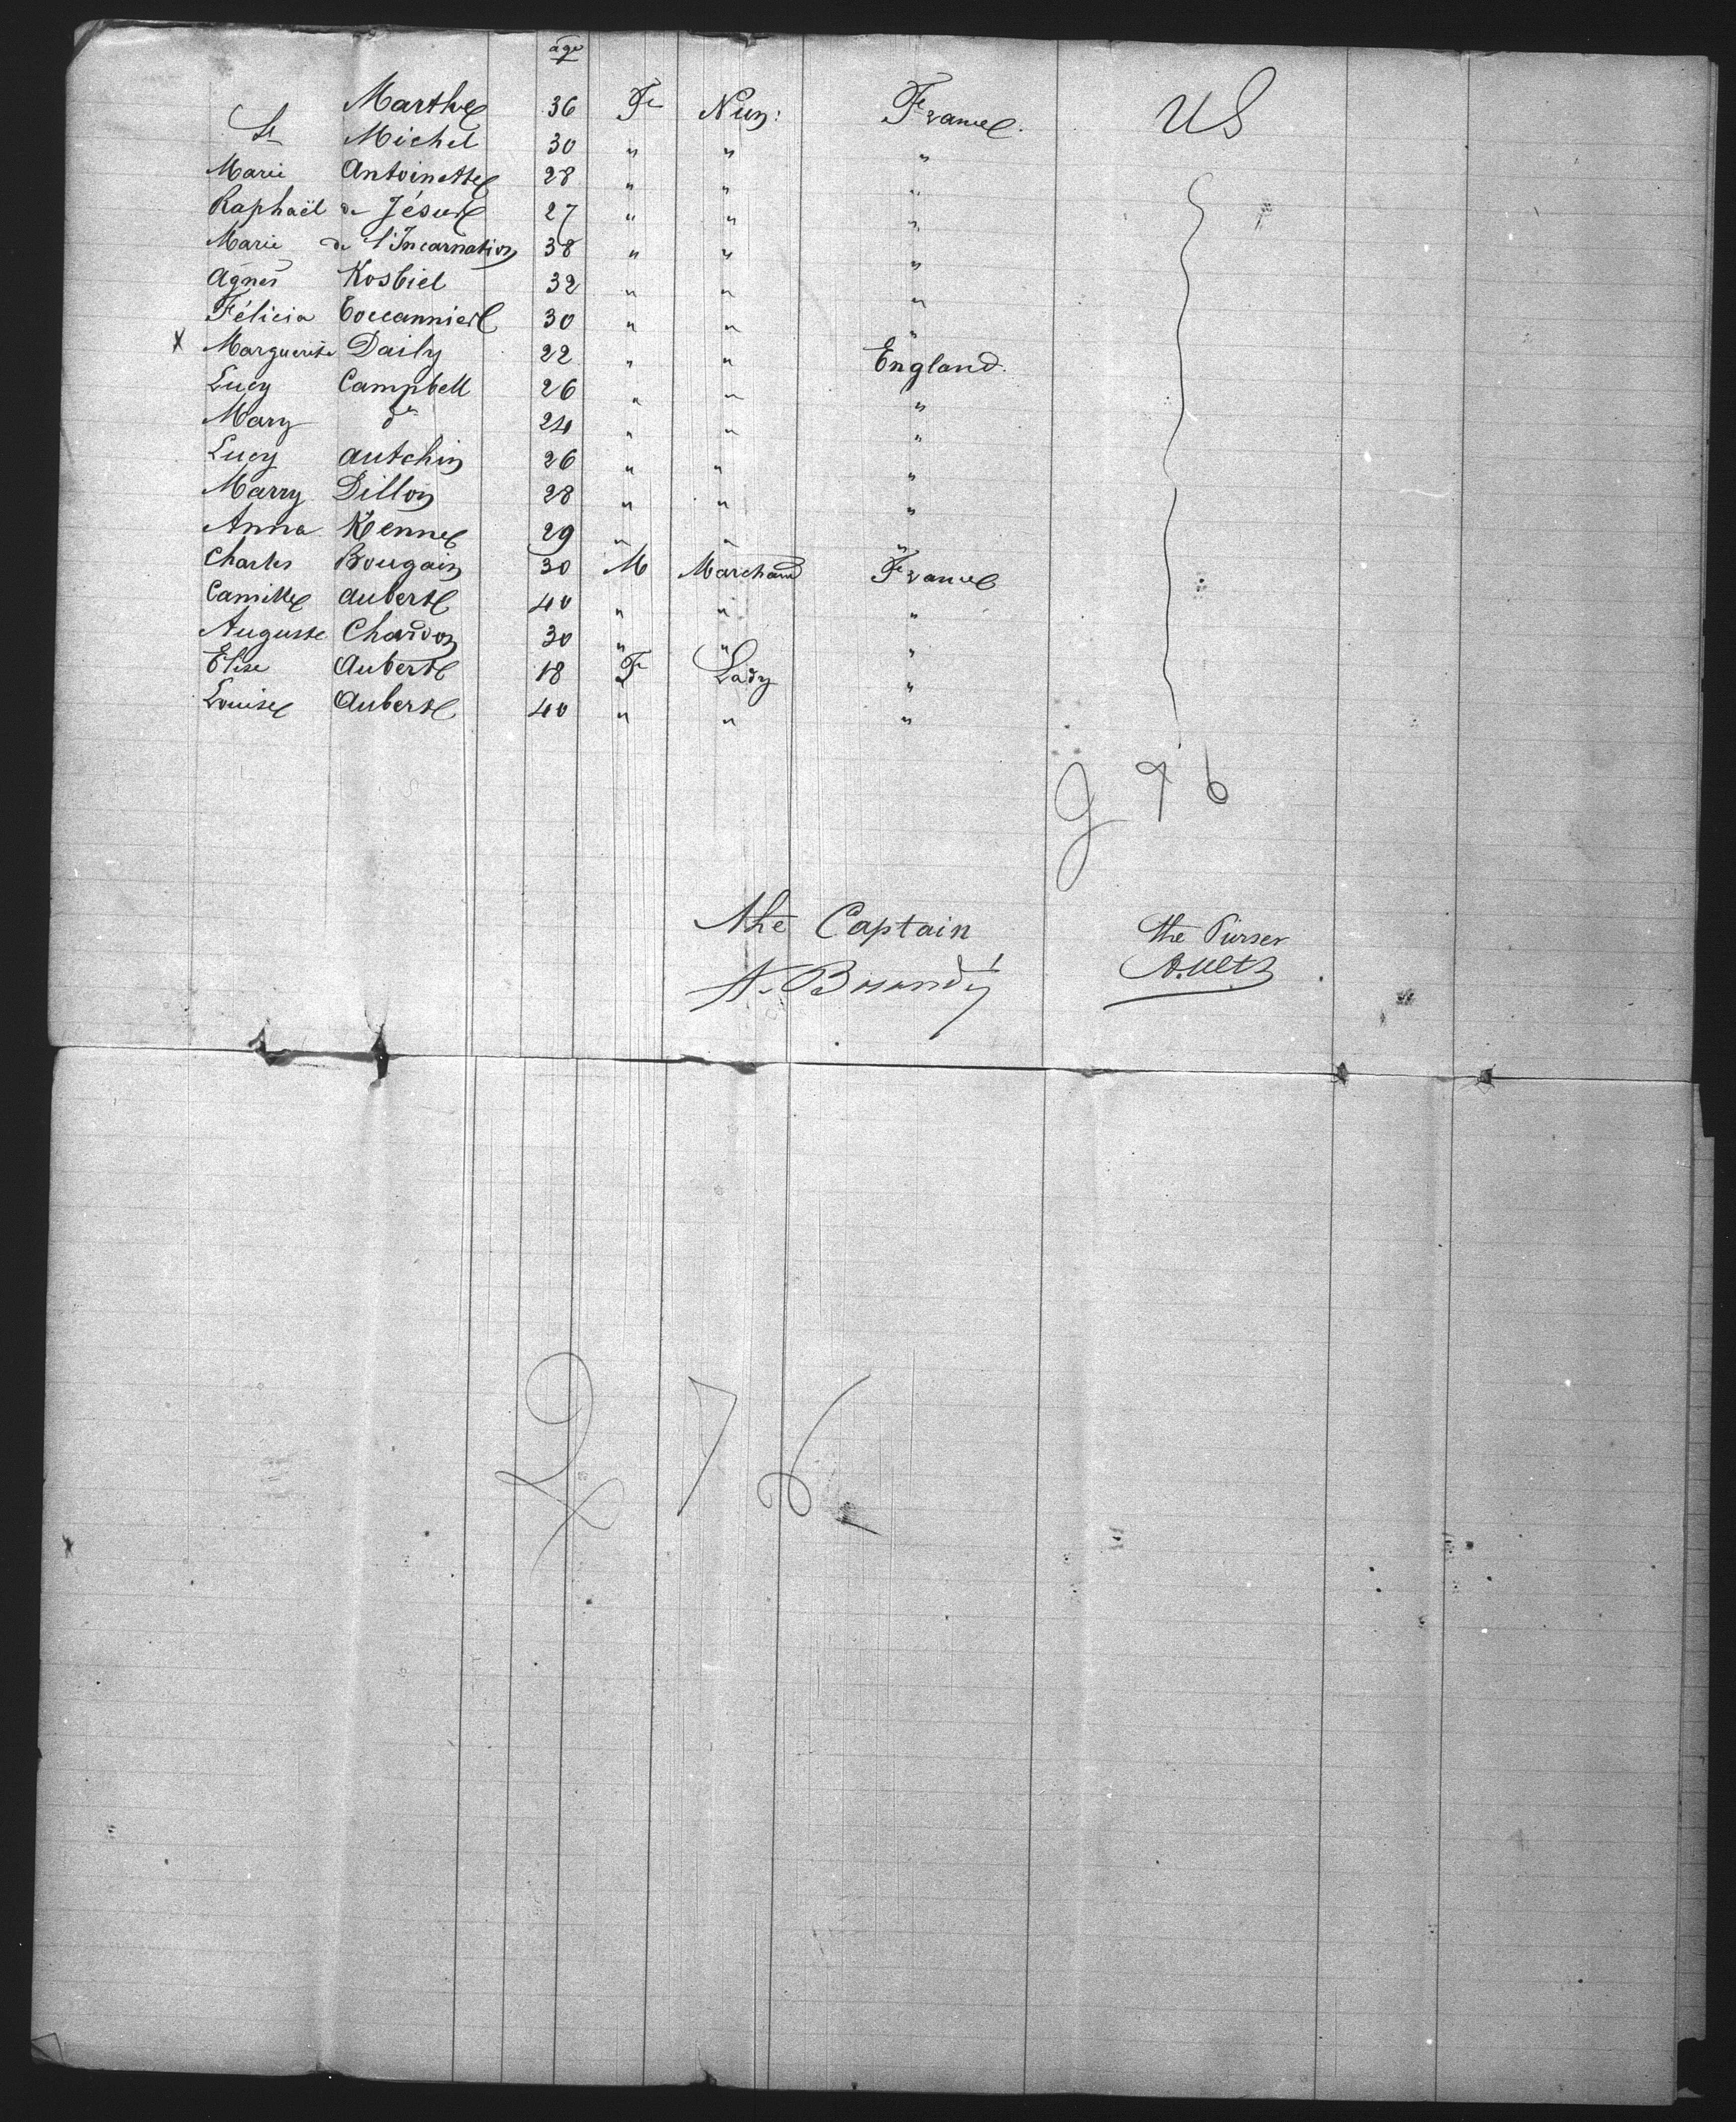 âge
Marthe 36 Fe Nun: France. US
St Michel 30 " " "
Marie Antoinette 28 " " "
Raphaël de Jésus 27 " " "
Marie de l'Incarnation 38 " " "
Agnes Kosbiel 32 " " "
Félicia Coccannier 30 " " "
x Marguerite Daily 22 " " England.
Lucy Campbell 26 " " "
Mary do 24 " " "
Lucy autchin 26 " " "
Marry Dillon 28 " " "
Anna Kenne 29 " " "
Charles Bougain 30 M Marchand France
Camille aubert 40 " " "
Auguste Chardon 30 " " "
Elise Aubert 18 F Lady "
Louise Aubert 40 " " "
976
the Captain the Purser
276